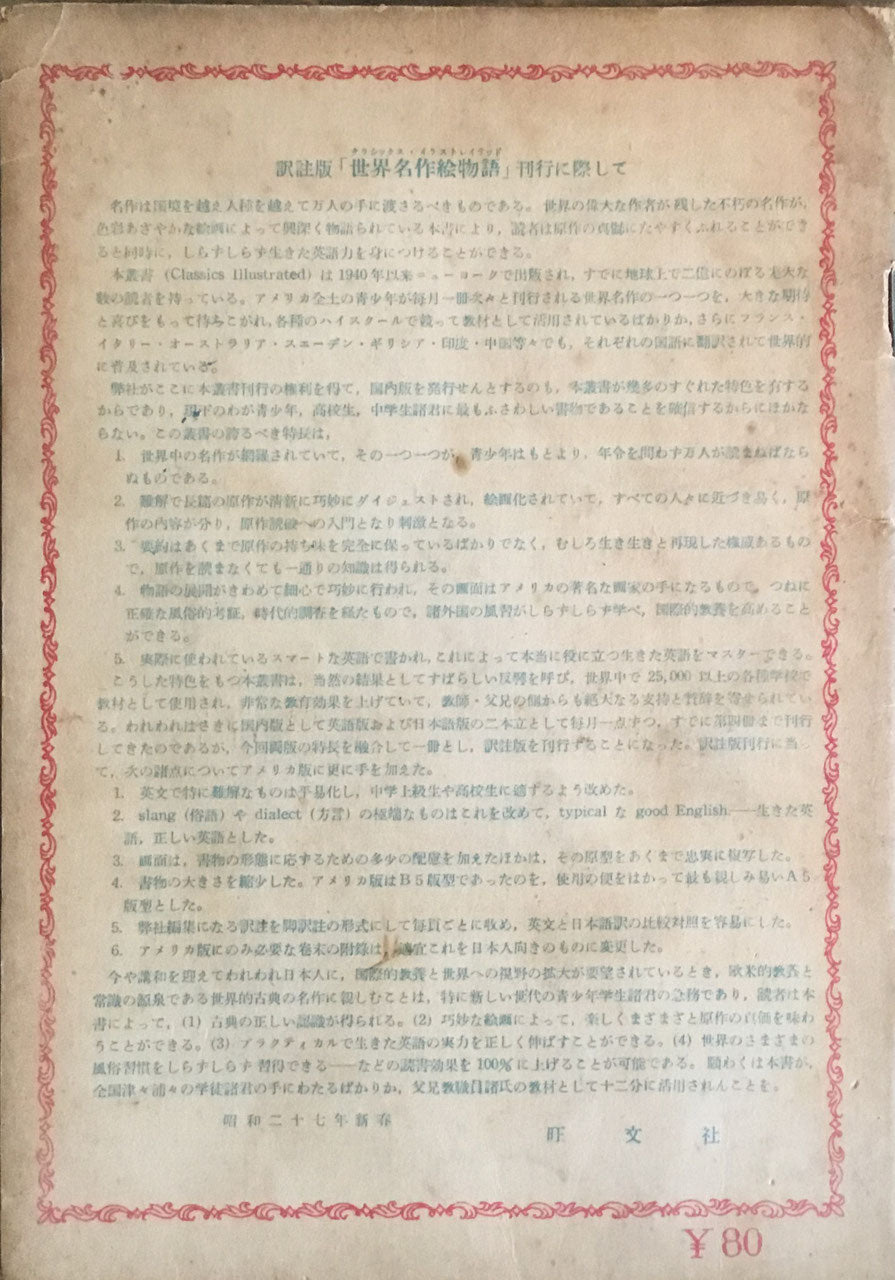 クラシックス・イラストレイテッド
訳註版「世界名作絵物語」刊行に際して
名作は国境を越え人種を越えて万人の手に渡さるべきものである。世界の偉大な作者が残した不朽の名作が,
色彩あざやかな絵画によって興深く物語られている本書により, 読者は原作の真髄にたやすくふれることができ
ると同時に, しらずしらず生きた英語力を身につけることができる。
本叢書 (Classics Illustrated) は1940年以来ニューヨークで出版され, すでに地球上で二億にのぼる尨大な
数の読者を持っている。アメリカ全土の青少年が毎月一冊次々と刊行される世界名作の一つ一つを, 大きな期待
と喜びをもって待ちこがれ, 各種のハイスクールで競って教材として活用されているばかりか, さらにフランス・
イタリー・オーストラリア・スエーデン・ギリシア・印度・中国等々でも, それぞれの国語に翻訳されて世界的
に普及されている。
弊社がここに本叢書刊行の権利を得て, 国内版を発行せんとするのも, 本叢書が幾多のすぐれた特色を有する
からであり, 現下のわが青少年, 高校生, 中学生諸君に最もふさわしい書物であることを確信するからにほかな
らない。この叢書の誇るべき特長は,
1. 世界中の名作が網羅されていて, その一つ一つが, 青少年はもとより, 年令を問わず万人が読まねばなら
ぬものである。
2. 難解で長篇の原作が清新に巧妙にダイジェストされ, 絵画化されていて, すべての人々に近づき易く, 原
作の内容が分り, 原作読破への入門となり刺激となる。
3. 要約はあくまで原作の持ち味を完全に保っているばかりでなく, むしろ生き生きと再現した権威あるもの
で, 原作を読まなくても一通りの知識は得られる。
4. 物語の展開がきわめて細心で巧妙に行われ, その画面はアメリカの著名な画家の手になるもので, つねに
正確な風俗的考証, 時代的調査を経たもので, 諸外国の風習がしらずしらず学べ, 国際的教養を高めること
ができる。
5. 実際に使われているスマートな英語で書かれ, これによって本当に役に立つ生きた英語をマスターできる。
こうした特色をもつ本叢書は, 当然の結果としてすばらしい反響を呼び, 世界中で 25,000 以上の各種学校で
教材として使用され, 非常な教育効果を上げていて, 教師・父兄の側からも絶大なる支持と賛辞を寄せられてい
る。われわれはさきに国内版として英語版および日本語版の二本立として毎月一点ずつ, すでに第四冊まで刊行
してきたのであるが, 今回両版の特長を融合して一冊とし, 訳註版を刊行することになった。訳註版刊行に当っ
て, 次の諸点についてアメリカ版に更に手を加えた。
1. 英文で特に難解なものは平易化し, 中学上級生や高校生に適するよう改めた。
2. slang (俗語) や dialect (方言) の極端なものはこれを改めて, typical な good English.——生きた英
語, 正しい英語とした。
3. 画面は, 書物の形態に応ずるための多少の配慮を加えたほかは, その原型をあくまで忠実に複写した。
4. 書物の大きさを縮少した。アメリカ版はB5版型であったのを, 使用の便をはかって最も親しみ易いA5
版型とした。
5. 弊社編集になる訳註を脚訳註の形式にして毎頁ごとに収め, 英文と日本語訳の比較対照を容易にした。
6. アメリカ版にのみ必要な巻末の附録は, 適宜これを日本人向きのものに変更した。
今や講和を迎えてわれわれ日本人に, 国際的教養と世界への視野の拡大が要望されているとき, 欧米的教養と
常識の源泉である世界的古典の名作に親しむことは, 特に新しい世代の青少年学生諸君の急務であり, 読者は本
書によって, (1) 古典の正しい認識が得られる。(2) 巧妙な絵画によって, 楽しくまざまざと原作の真価を味わ
うことができる。(3) プラクティカルで生きた英語の実力を正しく伸ばすことができる。(4) 世界のさまざまの
風俗習慣をしらずしらず習得できる——などの読書効果を 100% に上げることが可能である。願わくは本書が,
全国津々浦々の学徒諸君の手にわたるばかりか, 父兄教職員諸氏の教材として十二分に活用されんことを。
昭和二十七年新春
旺文社
¥80